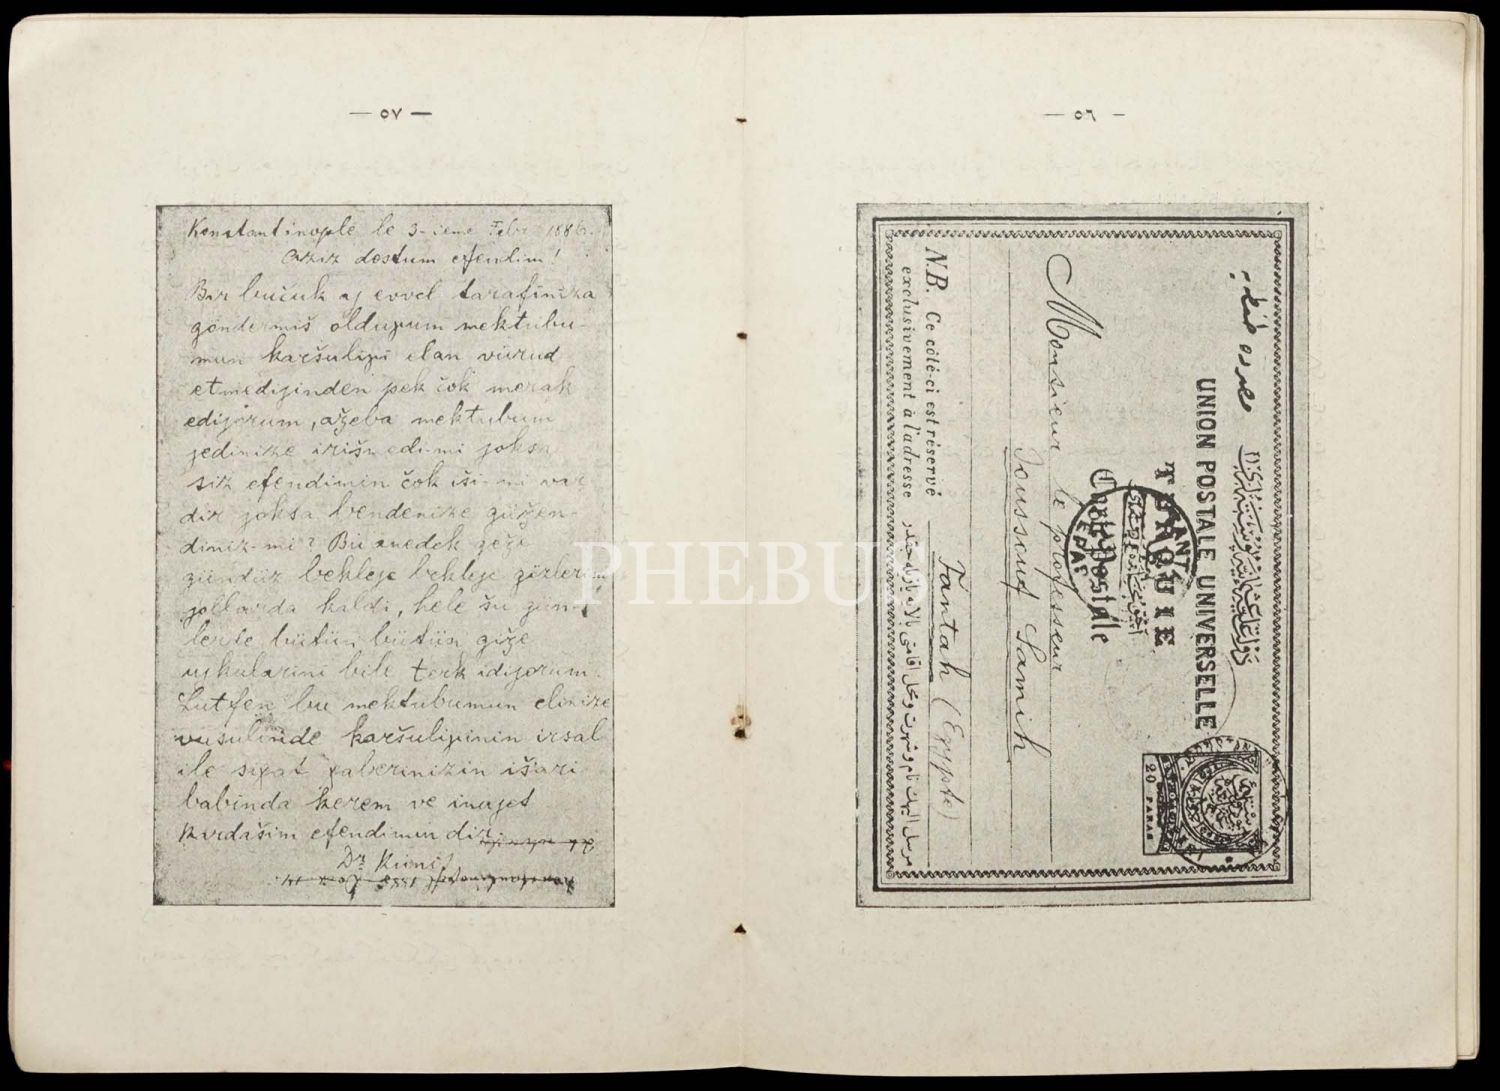 — ٥٧ —
Konstantinople le 3-ieme Febr 1886.
Aziz dostum efendim!
Bir bučuk aj evvel tarafiniza
göndermiš oldupum mektubu-
mun karšulipi elan vürud
etmedijinden pek čok merak
edijorum, ažeba mektubum
jedinize irišmedi-mi joksa
siz efendimin čok iši-mi var
dir joksa bendenize güžen-
diniz-mi? Bu
gündüz bekleje bekleje gözlerim
jollarda kaldi, hele šu gün-
lerde bütün bütün giže
ujkularini bile terk idijorum.
Lutfen bu mektubumun elinize
vusulinde karšulipinin irsal
ile sipat
babinda kerem ve inajet
kardašim efendimin dir.
Dr. Kunoš
— ٥٦ —
مصرده طنطه
دولت علیه عثمانیه پوسته لری
UNION POSTALE UNIVERSELLE
TURQUIE
Carte Postale
20 PARAS
Monsieur le professeur
Joussouf Samih
Tantah (Egypte)
N.B. Ce côté-ci est réservé
exclusivement à l'adresse
PHEBUS